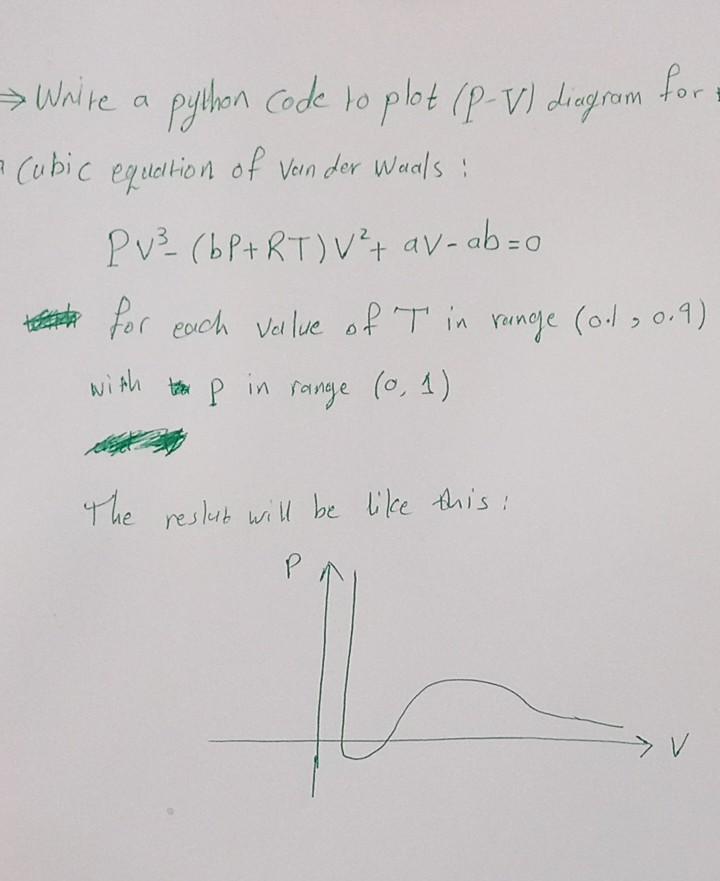 ⇒ Write a python code to plot (P-V) diagram for
cubic equation of Van der Waals :
PV³- (bP+RT)V²+ aV-ab=0
for each value of T in range (0.1, 0.9)
with p in range (0, 1)
The reslut will be like this :
P
V